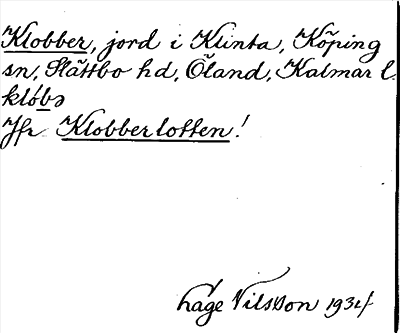 Klobber, jord i Klinta, Köping
sn, Slättbo hd, Öland, Kalmar l.
klóbə
Jfr Klobberlotten!
Åge Nilsson 1934